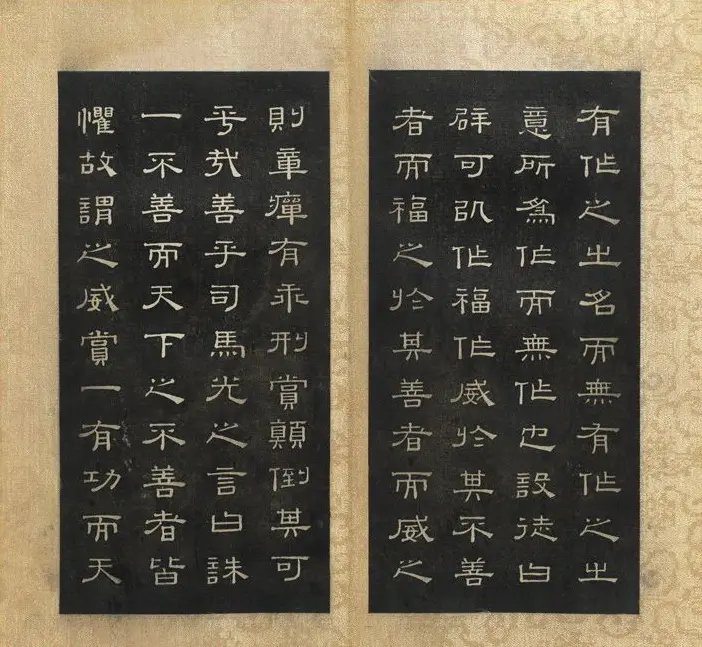 有作之之名而無有作之之
意所爲作而無作也設徒曰
辟可以作福作威於其不善
者而福之於其善者而威之
則章癉有乖刑賞顛倒其可
乎哉善乎司馬光之言曰誅
一不善而天下之不善者皆
懼故謂之威賞一有功而天